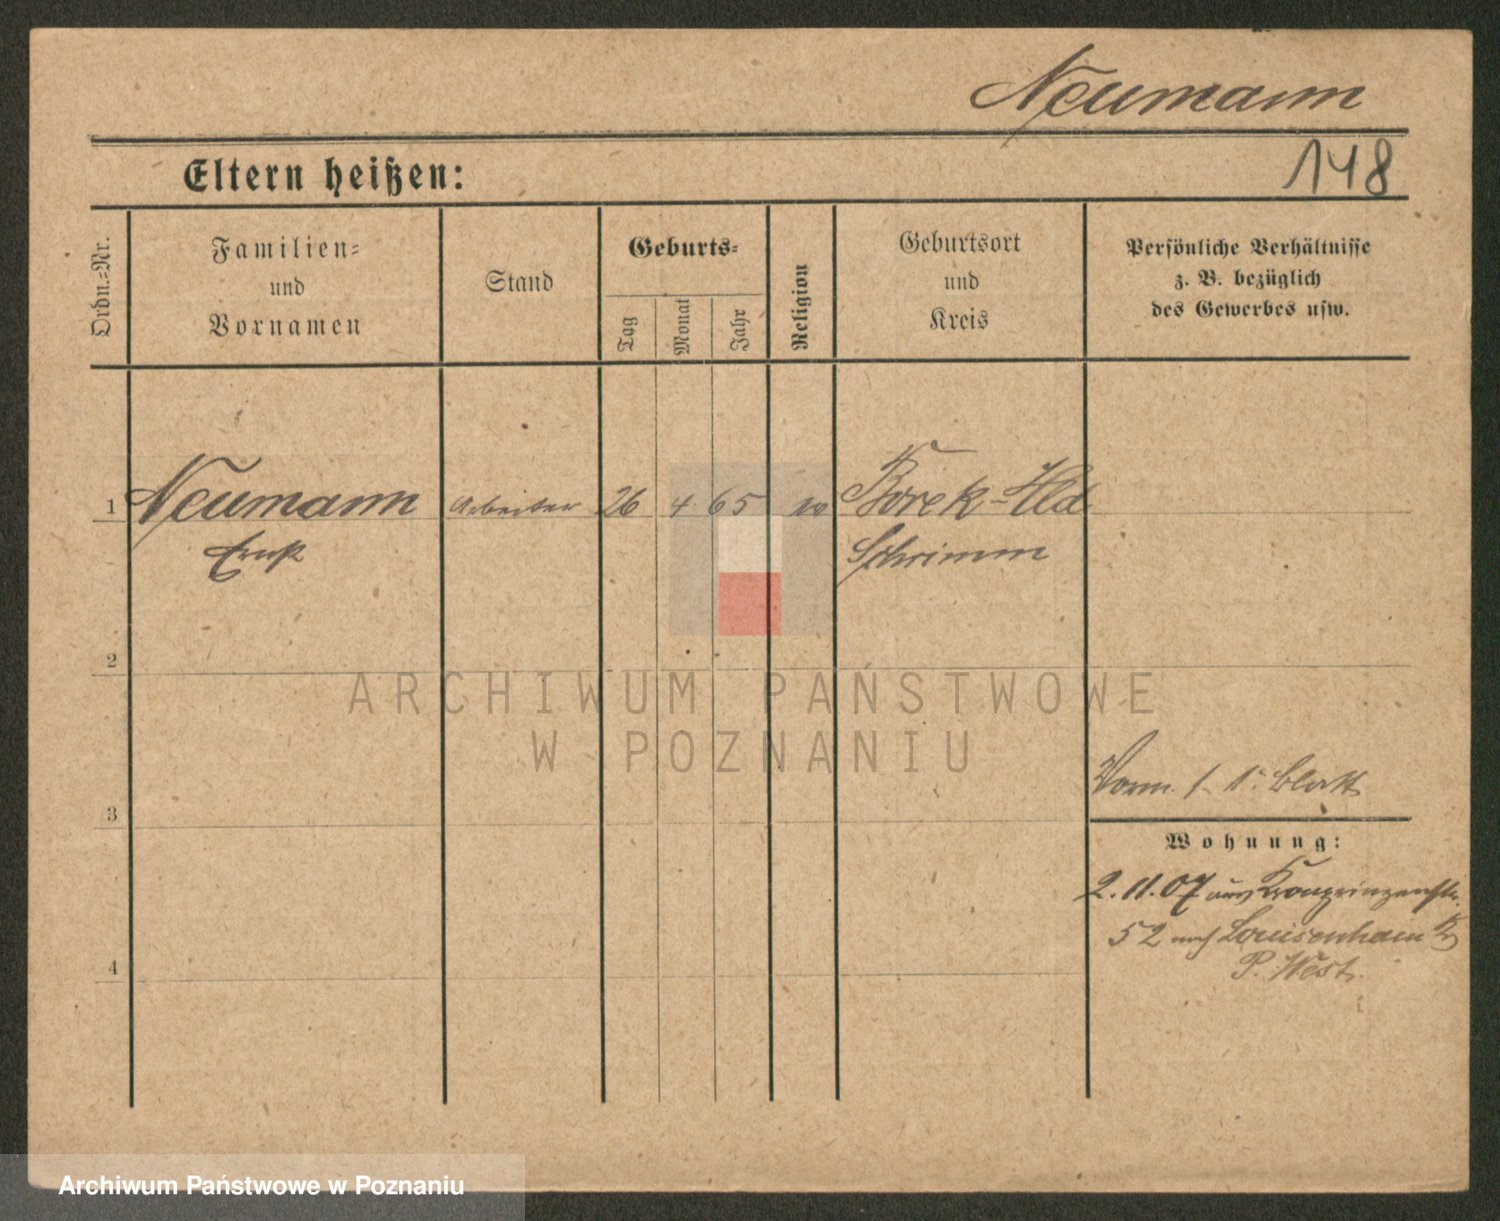 Neumann
148
Eltern heißen:
Ordn.-Nr.
Familien-
und
Vornamen
Stand
Geburts-
Tag
Monat
Jahr
Religion
Geburtsort
und
Kreis
Persönliche Verhältnisse
z. B. bezüglich
des Gewerbes usw.
1 Neumann Arbeiter 26 4 65 Borek-Hld
Ernst Schrimm
2
ARCHIWUM PAŃSTWOWE
W POZNANIU
Vorm. 1. Blatt
3
Wohnung:
2.11.07 aus Kronprinzenstr.
52 nach Louisenhain
4
P. West.
Archiwum Państwowe w Poznaniu